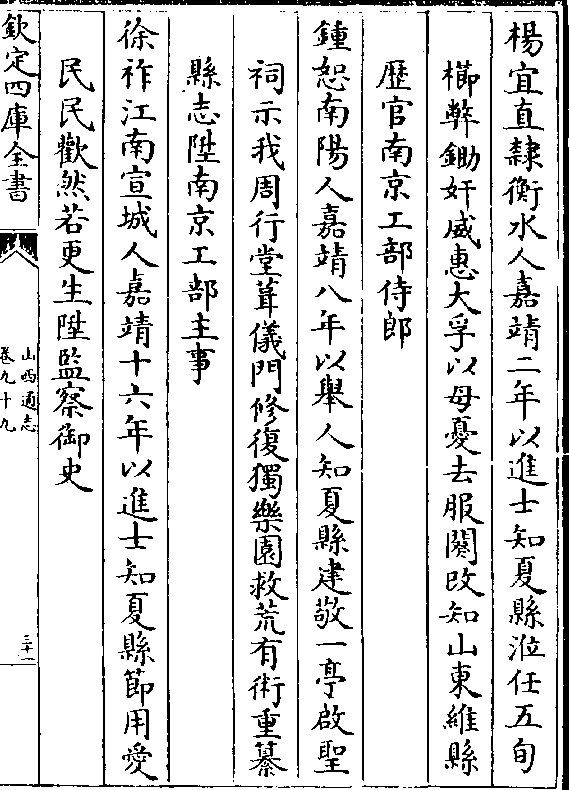 楊宜直隸衡水人嘉靖二年以進士知夏縣涖任五旬
櫛㢠鋤奸威惠大孚以母憂去服闋改知山東維縣
歴官南京工部侍郎
鍾恕南陽人嘉靖八年以舉人知夏縣建敬一亭啟聖
祠示我周行堂葺儀門修復獨樂園救荒有術重纂
縣志陞南京工部主事
徐祚江南宣城人嘉靖十六年以進士知夏縣節用愛
民民歡然若更生陞監察御史
欽定四庫全書
山西通志
卷九十九
三十一